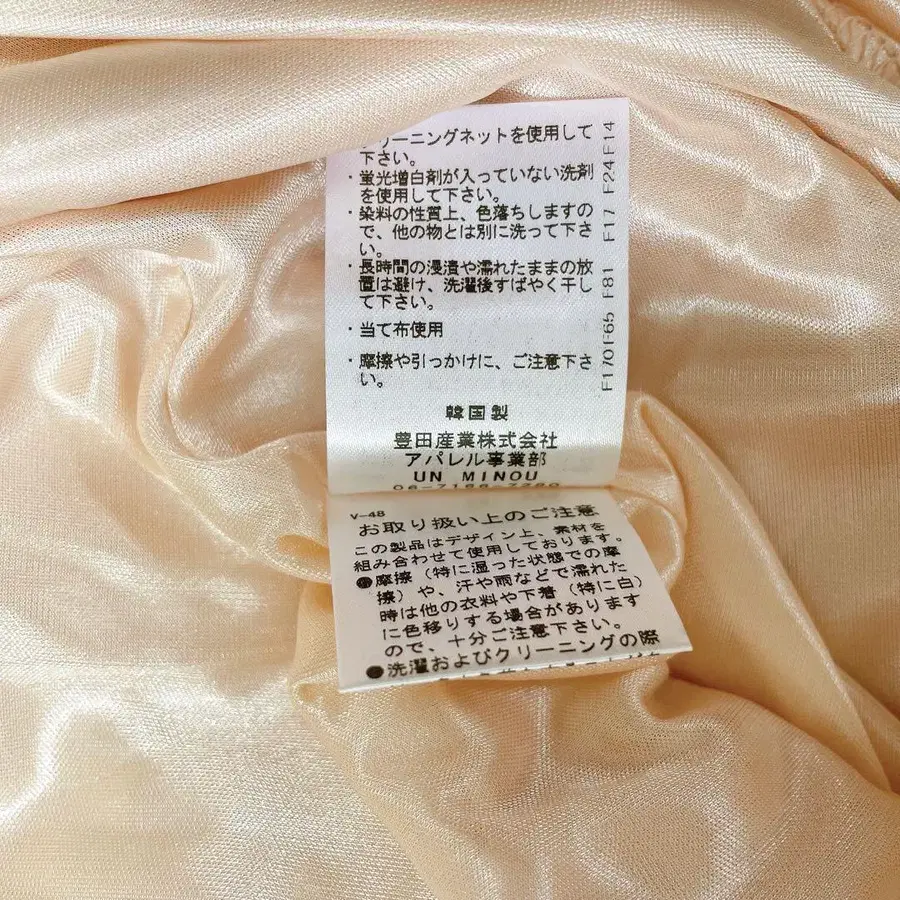 クリーニングネットを使用して
下さい。
・蛍光増白剤が入っていない洗剤
を使用して下さい。
・染料の性質上、色落ちしますの
で、他の物とは別に洗って下さ
い。
・長時間の浸漬や濡れたままの放
置は避け、洗濯後すばやく干し
て下さい。
・当て布使用
・摩擦や引っかけに、ご注意下さ
い。
F170F65 F81 F17 F24F14
韓国製
豊田産業株式会社
アパレル事業部
UN MINOU
V-48
お取り扱い上のご注意
この製品はデザイン上、素材を
組み合わせて使用しております。
●摩擦（特に湿った状態での摩
擦）や、汗や雨などで濡れた
時は他の衣料や下着（特に白）
に色移りする場合があります
ので、十分ご注意下さい。
●洗濯およびクリーニングの際